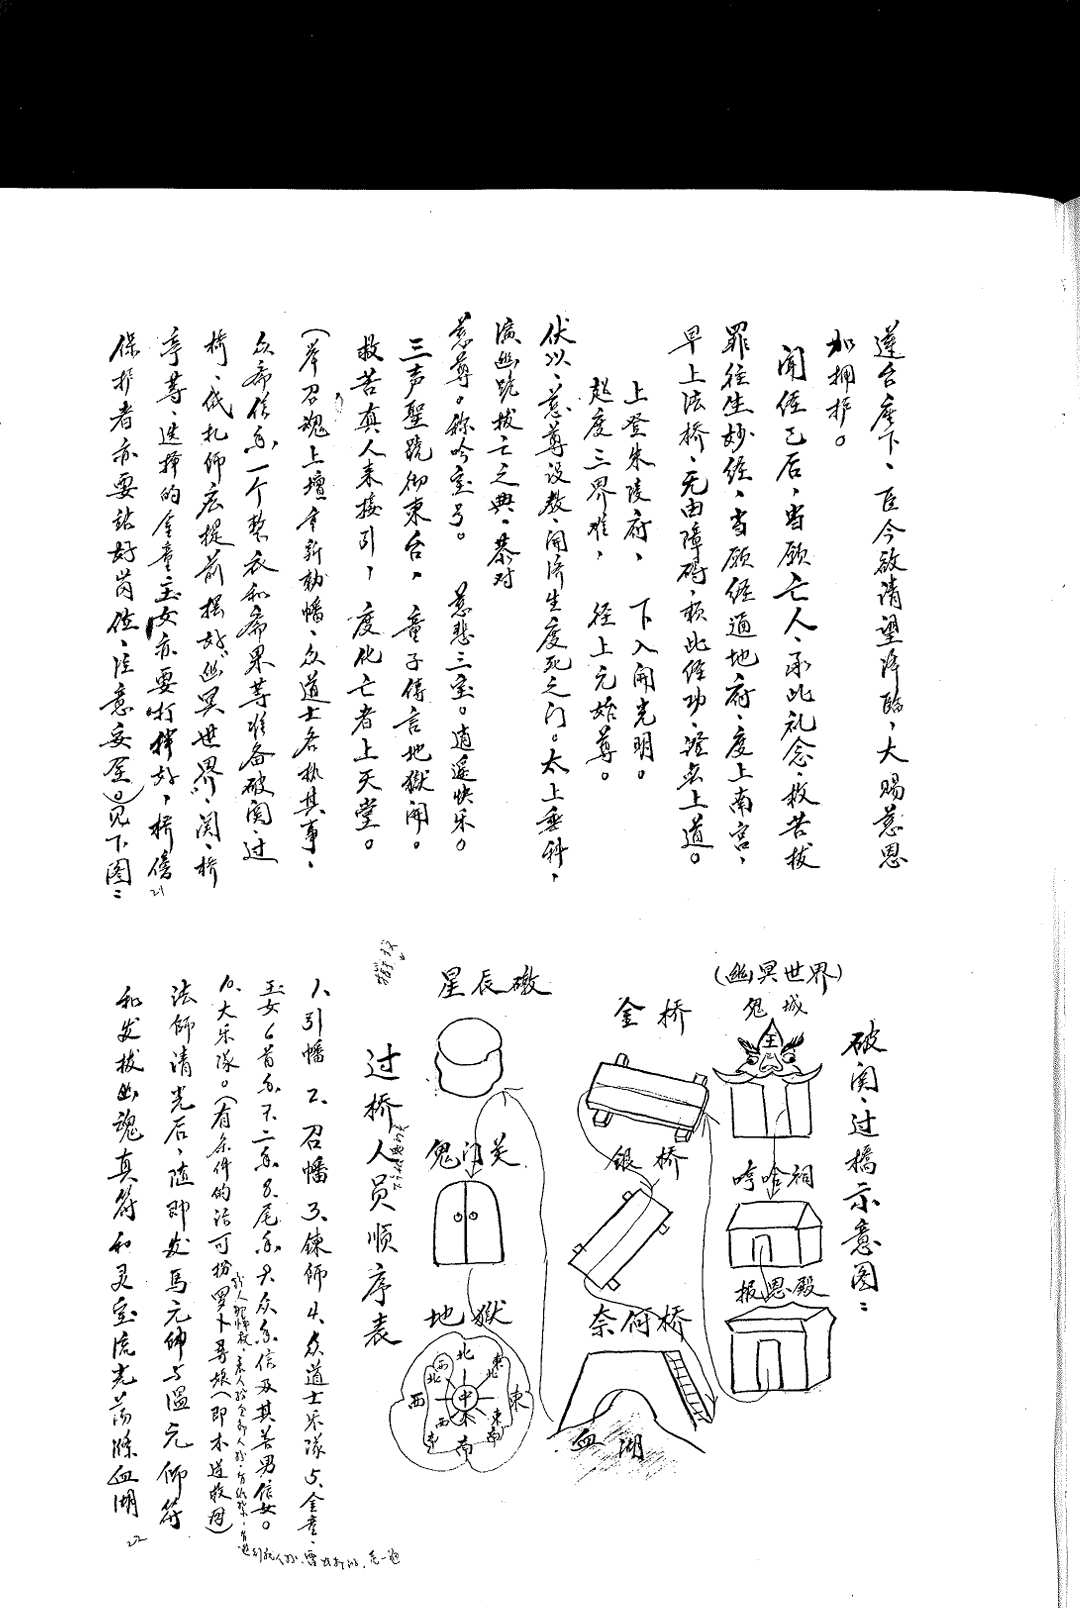 莲台座下、臣今啟清望降臨，大賜慈恩
加拥护。
闻经已后，当願亡人、承此礼念、救苦拔
罪往生妙经、当願经通地府、度上南宫、
早上法桥、无由障碍、賴此经功、證无上道。
上登朱陵府， 下入開光明。
超度三界难， 径上元始尊。
伏以、慈尊设教、開济生度死之门。太上垂科、
演幽跪拔亡之典、恭对
慈尊。称吟宝号。 慈悲三宝。逍遥快乐。
三声聖號彻東台， 童子傳言地獄開。
救苦真人来接引， 度化亡者上天堂。
(举召魂上壇重新勅幡、众道士各执其事、
众斋信各一个整衣和斋果等准备破関、过
桥、纸扎师应提前摆好“幽冥世界”、関、桥
亭等、选择的金童玉女亦要打扮好，桥傍
保护者亦要站好岗位、注意安全。)见下图：
21
破関、过橋示意图：
(幽冥世界)
鬼城
哼哈祠
报恩殿
金桥
银桥
奈何桥
血湖
星辰礅
鬼门关
地獄
北
東北
東
東南
南
西
西北
中
过桥人员顺序表
1、引幡 2、召幡 3、鍊师 4、众道士乐隊 5、金童、
玉女 6 首 7、二 8、尾 9 众信及其善男信女。
10、大乐隊。(有条件的话可扮罗卜寻娘(即木莲救母)
法师清光后，随即发馬元帅与温元帅符
和发拔幽魂真符和灵宝流光荡滌血湖
22